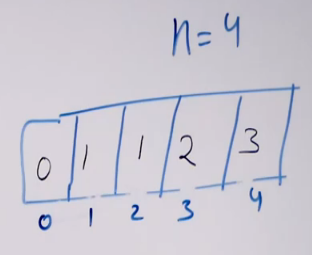 n = 4
0 1 1 2 3
0 1 2 3 4